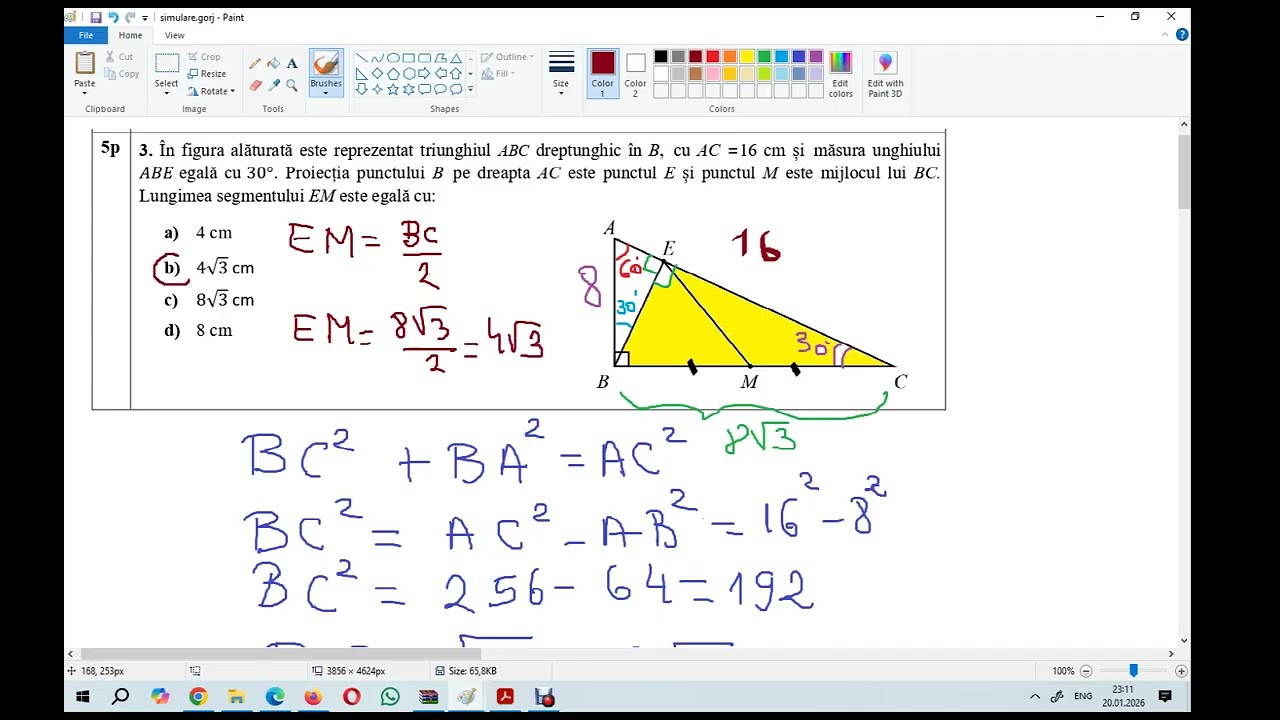 simulare.gorj - Paint
File Home View
Paste Cut Copy Clipboard
Select Crop Resize Rotate Image
Tools
Brushes
Shapes Outline Fill
Size
Color 1 Color 2 Colors
Edit colors
Edit with Paint 3D
5p 3. În figura alăturată este reprezentat triunghiul ABC dreptunghic în B, cu AC =16 cm și măsura unghiului
ABE egală cu 30°. Proiecția punctului B pe dreapta AC este punctul E și punctul M este mijlocul lui BC.
Lungimea segmentului EM este egală cu:
a) 4 cm
b) 4√3 cm
c) 8√3 cm
d) 8 cm
EM = BC/2
EM = 8√3/2 = 4√3
A
E
16
60°
8
30°
30°
B
M
C
8√3
BC² + BA² = AC²
BC² = AC² - AB² = 16² - 8²
BC² = 256 - 64 = 192
168, 253px
3856 × 4624px
Size: 65,8KB
100%
ENG
23:11
20.01.2026